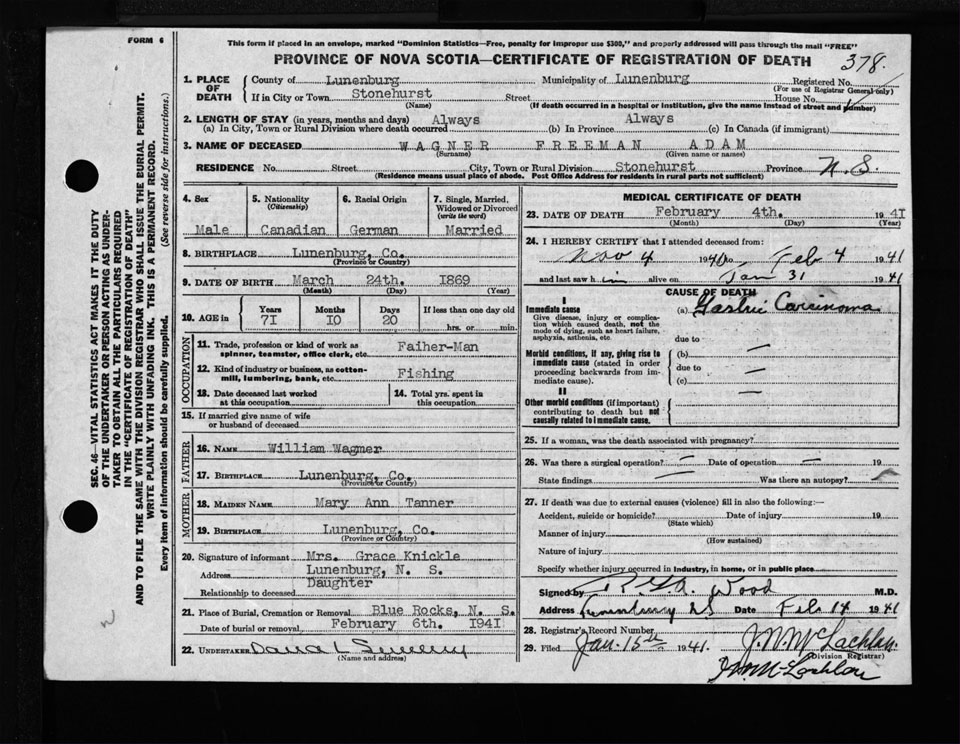 FORM 6
This form if placed in an envelope, marked "Dominion Statistics—Free, penalty for improper use $300," and properly addressed will pass through the mail "FREE"
PROVINCE OF NOVA SCOTIA—CERTIFICATE OF REGISTRATION OF DEATH
378.
SEC. 46—VITAL STATISTICS ACT MAKES IT THE DUTY
OF THE UNDERTAKER OR PERSON ACTING AS UNDER-
TAKER TO OBTAIN ALL THE PARTICULARS REQUIRED
IN THE "CERTIFICATE OF REGISTRATION OF DEATH"
AND TO FILE THE SAME WITH THE DIVISION REGISTRAR WHO SHALL ISSUE THE BURIAL PERMIT.
WRITE PLAINLY WITH UNFADING INK. THIS IS A PERMANENT RECORD.
Every item of information should be carefully supplied. (See reverse side for instructions.)
1. PLACE OF DEATH County of Lunenburg Municipality of Lunenburg Registered No.
(For use of Registrar General only)
If in City or Town Stonehurst Street House No.
(Name) (If death occurred in a hospital or institution, give the name instead of street and number)
2. LENGTH OF STAY (in years, months and days) Always Always
(a) In City, Town or Rural Division where death occurred (b) In Province (c) In Canada (if immigrant)
3. NAME OF DECEASED WAGNER FREEMAN ADAM
(Surname) (Given name or names)
RESIDENCE No. Street City, Town or Rural Division Stonehurst Province N.S.
(Residence means usual place of abode. Post Office Address for residents in rural parts not sufficient)
4. Sex 5. Nationality (Citizenship) 6. Racial Origin 7. Single, Married, Widowed or Divorced (write the word)
Male Canadian German Married
8. BIRTHPLACE Lunenburg, Co.
(Province or Country)
9. DATE OF BIRTH March 24th. 1869
(Month) (Day) (Year)
10. AGE in Years Months Days If less than one day old
71 10 20 hrs. or min.
OCCUPATION
11. Trade, profession or kind of work as spinner, teamster, office clerk, etc. Faiher-Man
12. Kind of industry or business, as cotton-mill, lumbering, bank, etc. Fishing
13. Date deceased last worked at this occupation
14. Total yrs. spent in this occupation
15. If married give name of wife or husband of deceased
FATHER
16. NAME William Wagner
17. BIRTHPLACE Lunenburg, Co.
(Province or Country)
MOTHER
18. MAIDEN NAME Mary Ann Tanner
19. BIRTHPLACE Lunenburg, Co.
(Province or Country)
20. Signature of informant Mrs. Grace Knickle
Address Lunenburg, N. S.
Relationship to deceased Daughter
21. Place of Burial, Cremation or Removal Blue Rocks, N. S.
Date of burial or removal February 6th. 1941
22. UNDERTAKER
(Name and address)
MEDICAL CERTIFICATE OF DEATH
23. DATE OF DEATH February 4th. 1941
(Month) (Day) (Year)
24. I HEREBY CERTIFY that I attended deceased from:
Nov 4 1940 to Feb 4 1941
and last saw him alive on Jan 31 1941
CAUSE OF DEATH
I
Immediate cause (a) Gastric Carcinoma
Give disease, injury or complication which caused death, not the mode of dying, such as heart failure, asphyxia, asthenia, etc.
due to
Morbid conditions, if any, giving rise to immediate cause (stated in order proceeding backwards from immediate cause). (b) —
due to
(c) —
II
Other morbid conditions (if important) contributing to death but not causally related to immediate cause.
25. If a woman, was the death associated with pregnancy?
26. Was there a surgical operation? — Date of operation — 19
State findings Was there an autopsy?
27. If death was due to external causes (violence) fill in also the following:—
Accident, suicide or homicide? Date of injury 19
(State which)
Manner of injury
(How sustained)
Nature of injury
Specify whether injury occurred in industry, in home, or in public place
Signed by Wood M.D.
Address Lunenburg NS Date Feb 14 1941
28. Registrar's Record Number
29. Filed Jan. 15th 1941. J.W. McLachlan.
(Division Registrar)
J.W. McLachlan